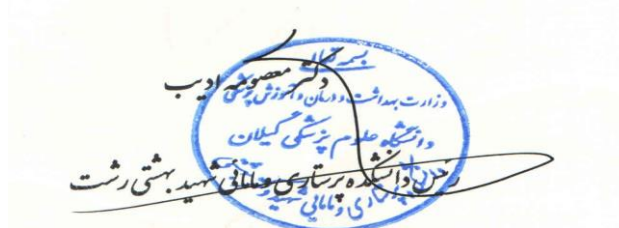 بسمه تعالی
دکتر معصومه ادیب
وزارت بهداشت و درمان و آموزش پزشکی
دانشگاه علوم پزشکی گیلان
رئیس دانشکده پرستاری و مامائی شهید بهشتی رشت
پرستاری و مامایی شهید